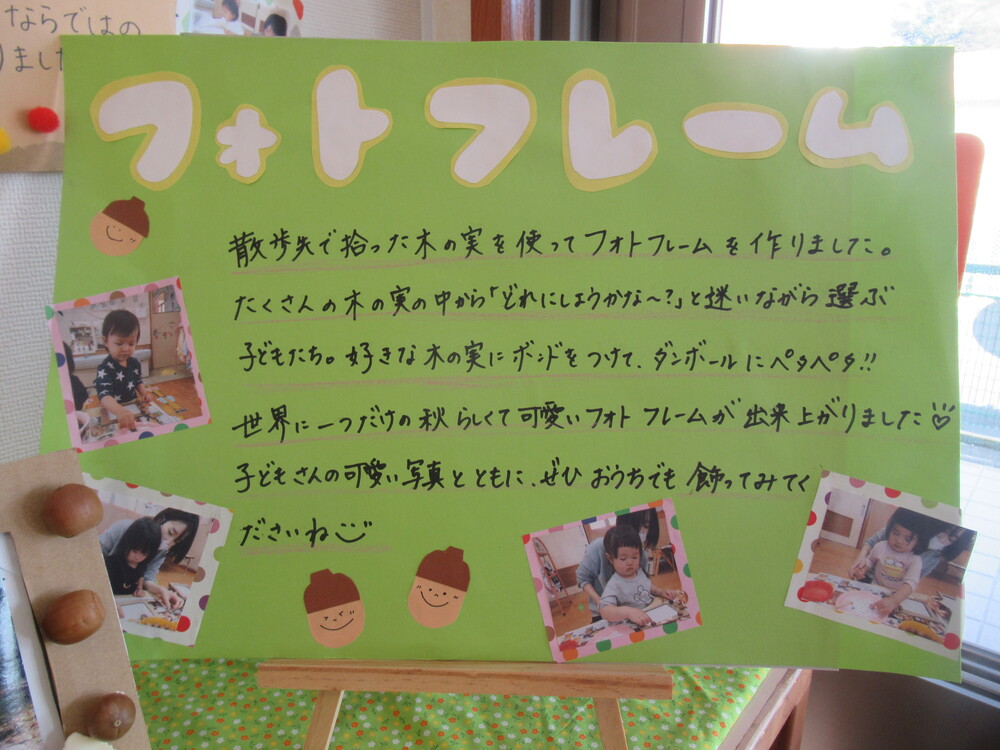 ならでは の
りまし
フォトフレーム
散歩先で拾った木の実を使ってフォトフレームを作りました。
たくさんの木の実の中から「どれにしようかな～？」と迷いながら選ぶ
子どもたち。好きな木の実にボンドをつけて、ダンボールにペタペタ!!
世界に一つだけの秋らしくて可愛いフォトフレームが出来上がりました
子どもさんの可愛い写真とともに、ぜひおうちでも飾ってみてく
ださいね